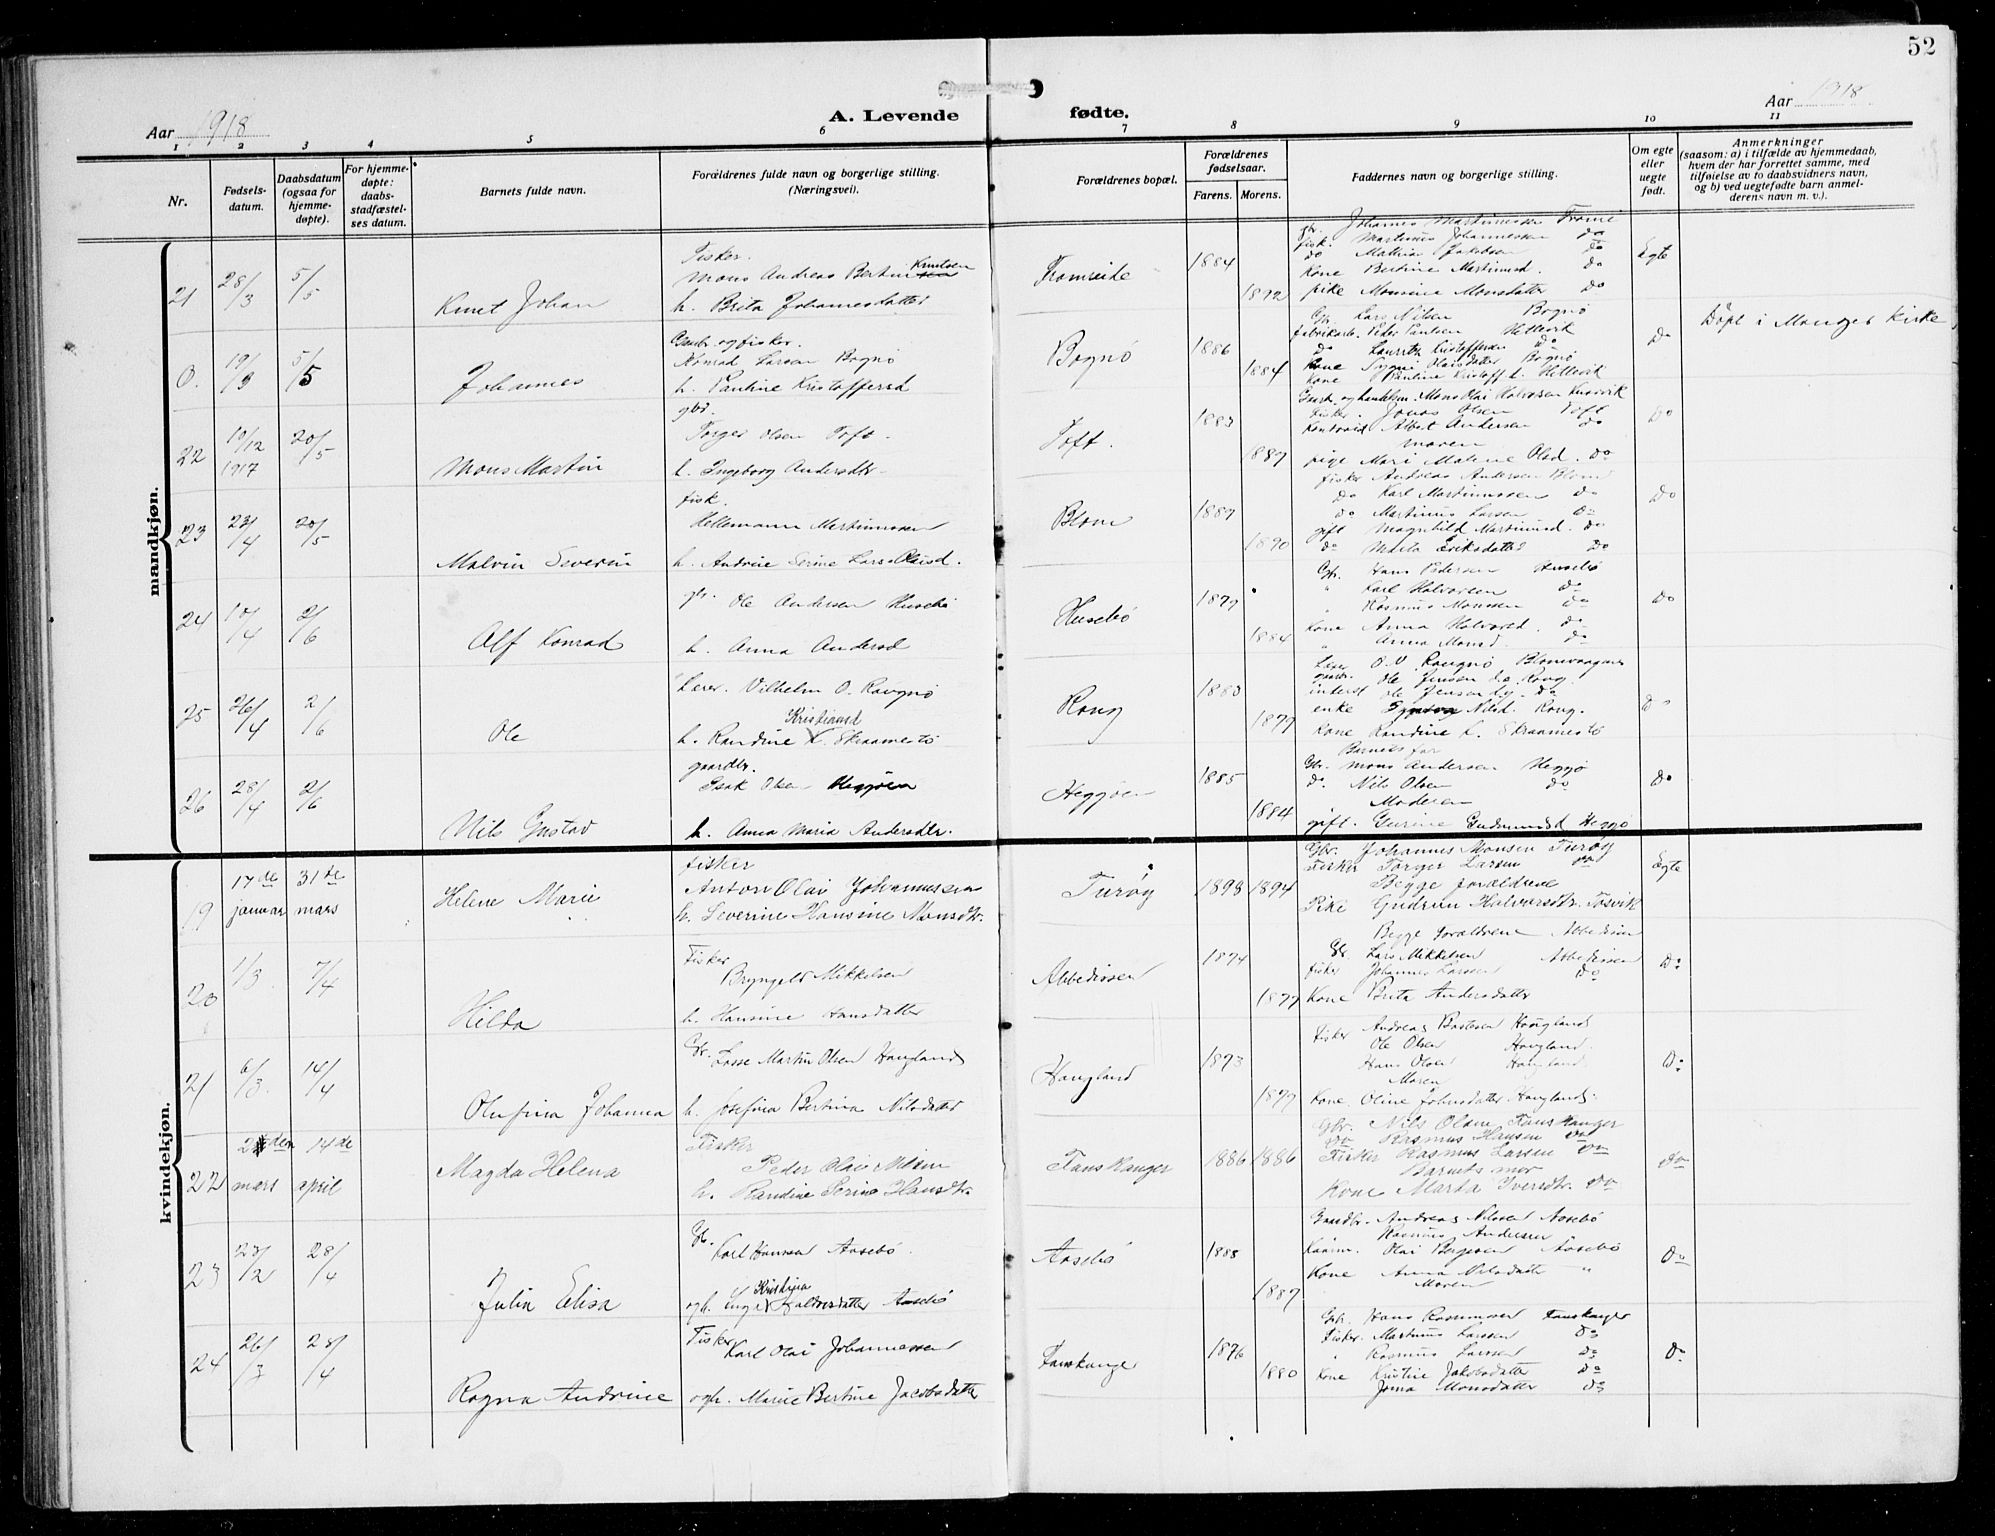 52
Aar 1918
A. Levende fødte.
Aar 1918
1 2 3 4 5 6 7 8 9 10 11
Nr.
Fødsels-
datum.
Daabsdatum
(ogsaa for
hjemme-
døpte).
For hjemme-
døpte:
daabs-
stadfæstel-
ses datum.
Barnets fulde navn.
Forældrenes fulde navn og borgerlige stilling.
(Næringsvei).
Forældrenes bopæl.
Forældrenes
fødselsaar.
Farens. Morens.
Faddernes navn og borgerlige stilling.
Om egte
eller
uegte
født.
Anmerkninger
(saasom: a) i tilfælde av hjemmedaab,
hvem der har forrettet samme, med
tilføielse av to daabsvidners navn,
og b) ved uegtefødte barn anmel-
derens navn m. v.).
mandkjøn.
21 28/3 5/5 Knut Johan
Fisker.
Mons Andreas Bertin Knutsen
h. Brita Johannesdatter
Tromseide 1884 1892
gbr. Johannes Martinussen
fisk. Martinus Johannessen do
do Mathias Jakobsen do
Kone Bertine Martinusd. do
pike Monsine Monsdatter do
Egte
0. 19/3 5/5 Johannes
Gaardbr. og fisker.
Konrad Larsen Bognø
h. Pauline Kristoffersd
Bognø 1886 1884
Gbr. Lars Nilsen Bognø
fabrikarb. Peder Paulsen Hellevik
do Lauritz Kristoffersen do
Kone Olaisdatter Bognø
Kone Pauline Kristoff d. Hellevik
Do
Døpt i Manger Kirke
22 10/12 1917 20/5 Mons Martin
gbr.
Torger Olsen Toft.
h. Ingeborg Andersdtr.
Toft. 1883 1889
Gaardbr. og handelsm. Mons Olai Halvorsen
Fisker. Jonas Olsen Toft
Albert Andersen do
moren
pige Mari Malene Olsd. do
Do
23 23/4 20/5 Malvin Severin
fisk.
Hellemann Martinussen
h. Andrine Serine Larsd.
Blom 1889 1890
fisker Andreas Andersen Blom
do Karl Martinussen do
do Martinus Larsen do
gift Magnhild Martinusd. do
do Marta Eriksdatter do
Do
24 10/4 2/6 Alf Konrad
gbr. Ole Andersen Husebø
h. Anna Andersd
Husebø 1879 1884
Gbr. Hans Pedersen Husebø
" Karl Halvorsen do
" Rasmus Monssen do
Kone Anna Halvorsd. do
" Anna Monsd. do
Do
25 26/4 2/6 Ole
Lærer. Vilhelm O. Rongnø
Kristiansd
h. Randine K. Skraamestø
Rong 1880 1879
Lærer O. V. Rongnø Blomvaagnes
gaardbr. Ole Jensen d.e. Rong.
inderst Ole Jensen d.y. do
enke Nilsd. Rong.
Kone Randine K. Skraamestø
Do
26 28/4 2/6 Nils Gustav
gaardbr.
Isak Olsen Heggøen
h. Anna Maria Andersdtr.
Heggøen 1885 1884
Barnets far
Gbr. Mons Andersen Heggø
do. Nils Olsen do
Moderen
gift. Gurine Gudmundsd Heggø
Do
kvindekjøn.
19 17de januar 31de mars Helene Marie
fisker
Anton Olai Johannessen
h. Severine Hansine Monsdtr.
Turøy 1893 1894
Gbr. Johannes Monsen Turøy
Fisker Torger Larsen do
Begge forældrene
Pike Gudrun Halvorsdtr. Tosvik
Egte
20 1/3 7/4 Hilda
Fisker
Bryngel Mikkelsen
h. Hansine Hansdatter
Abbedissen 1874 1877
Begge forældrene Abbedissen
Gbr. Lars Mikkelsen Abbedissen
fisker Johannes Larsen do
Kone Brita Andersdatter
Do
21 6/3 14/4 Olufina Johanna
Gbr. Lasse Martin Olsen Haugland
h. Josefina Bertina Nilsdatter
Haugland 1873 1879
Fisker Andreas Haugland
Ole Olsen Haugland
Hans Olsen Haugland
Moren
Kone. Oline Johnsdatter Haugland.
Do
22 mars 14de april Magda Helena
Fisker
Peder Olai Nilsen
h. Randine Serine Hansdtr.
Fanskanger 1886 1886
Gbr. Nils Olsen Fanskanger
do Rasmus Hansen do
Fisker Rasmus Larsen do
Barnets mor
Kone Marta Iversdtr. do
do
23 23/2 28/4 Julia Elisa
Gbr.
Karl Hanssen Aasebø.
Kristina
ogh. Inga Aasebø
Aasebø 1888 1887
Gaardbr. Andreas Nilssen Aasebø
Rasmus Andersen
Olai Aasebø
Kone Anna Nilsdatter "
Moren
Do
24 26/3 28/4 Ragna Andrine
Fisker
Karl Olai Johannessen
ogh. Marie Bertine Jacobsdatter
Fanskanger 1876 1880
Gbr. Hans Rasmussen Fanskanger
Fisker. Martinus Larsen do
" Rasmus Larsen do
Kone Kristine Jakobsdatter do
Monsdatter do
Do